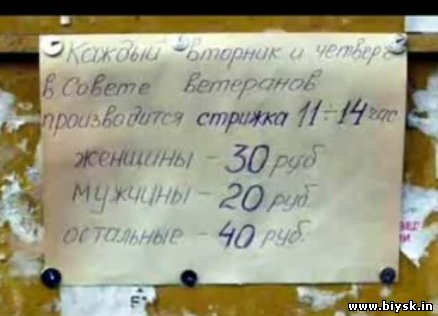 Каждый вторник и четверг
в Совете ветеранов
производится стрижка 11÷14 час
женщины - 30 руб
мужчины - 20 руб.
остальные - 40 руб.
www.biysk.in